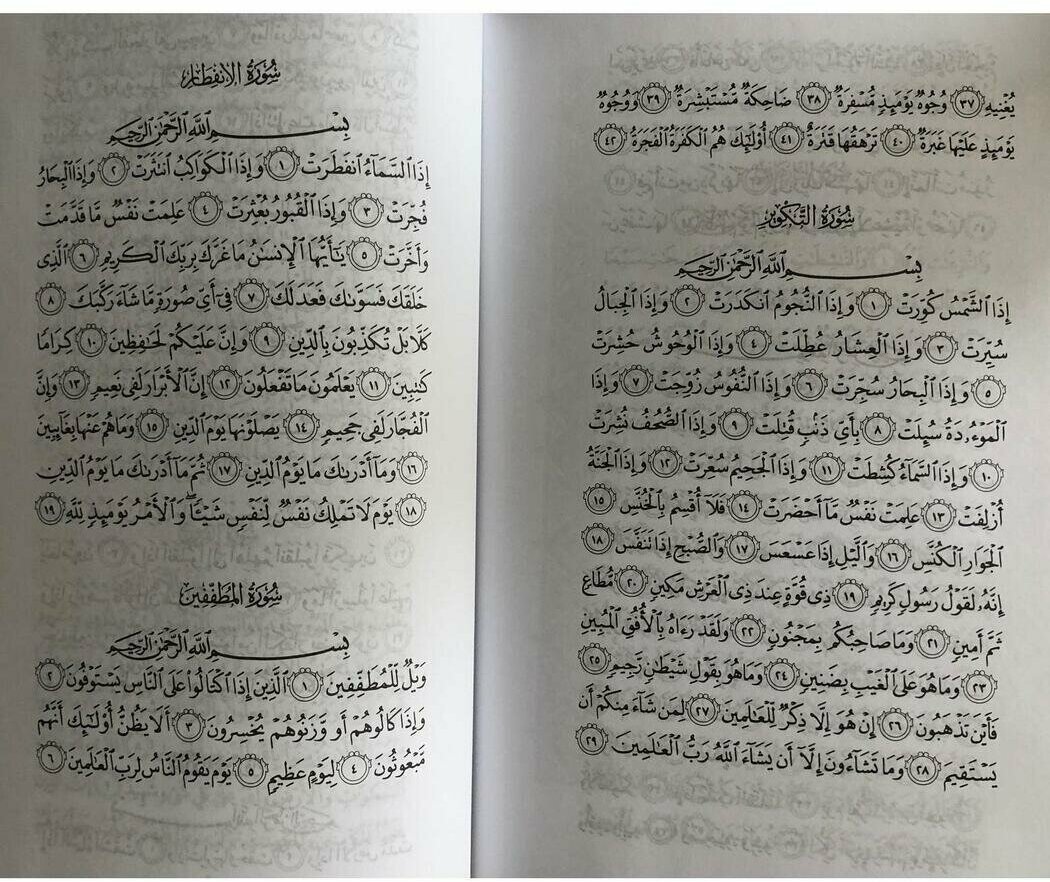 يُغْنِيهِ ٣٧ وُجُوهٌ يَوْمَئِذٍ مُّسْفِرَةٌ ٣٨ ضَاحِكَةٌ مُّسْتَبْشِرَةٌ ٣٩ وَوُجُوهٌ
يَوْمَئِذٍ عَلَيْهَا غَبَرَةٌ ٤٠ تَرْهَقُهَا قَتَرَةٌ ٤١ أُوْلَٰٓئِكَ هُمُ الْكَفَرَةُ الْفَجَرَةُ ٤٢
سُورَةُ التَّكْوِيرِ
بِسْمِ اللَّهِ الرَّحْمَٰنِ الرَّحِيمِ
إِذَا الشَّمْسُ كُوِّرَتْ ١ وَإِذَا النُّجُومُ انكَدَرَتْ ٢ وَإِذَا الْجِبَالُ
سُيِّرَتْ ٣ وَإِذَا الْعِشَارُ عُطِّلَتْ ٤ وَإِذَا الْوُحُوشُ حُشِرَتْ
٥ وَإِذَا الْبِحَارُ سُجِّرَتْ ٦ وَإِذَا النُّفُوسُ زُوِّجَتْ ٧ وَإِذَا
الْمَوْءُۥدَةُ سُئِلَتْ ٨ بِأَيِّ ذَنۢبٍ قُتِلَتْ ٩ وَإِذَا الصُّحُفُ نُشِرَتْ
١٠ وَإِذَا السَّمَآءُ كُشِطَتْ ١١ وَإِذَا الْجَحِيمُ سُعِّرَتْ ١٢ وَإِذَا الْجَنَّةُ
أُزْلِفَتْ ١٣ عَلِمَتْ نَفْسٌ مَّآ أَحْضَرَتْ ١٤ فَلَآ أُقْسِمُ بِالْخُنَّسِ ١٥
الْجَوَارِ الْكُنَّسِ ١٦ وَالَّيْلِ إِذَا عَسْعَسَ ١٧ وَالصُّبْحِ إِذَا تَنَفَّسَ ١٨
إِنَّهُۥ لَقَوْلُ رَسُولٍ كَرِيمٍ ١٩ ذِى قُوَّةٍ عِندَ ذِى الْعَرْشِ مَكِينٍ ٢٠ مُّطَاعٍ
ثَمَّ أَمِينٍ ٢١ وَمَا صَاحِبُكُم بِمَجْنُونٍ ٢٢ وَلَقَدْ رَءَاهُ بِالْأُفُقِ الْمُبِينِ
٢٣ وَمَا هُوَ عَلَى الْغَيْبِ بِضَنِينٍ ٢٤ وَمَا هُوَ بِقَوْلِ شَيْطَٰنٍ رَّجِيمٍ ٢٥
فَأَيْنَ تَذْهَبُونَ ٢٦ إِنْ هُوَ إِلَّا ذِكْرٌ لِّلْعَالَمِينَ ٢٧ لِمَن شَآءَ مِنكُمْ أَن
يَسْتَقِيمَ ٢٨ وَمَا تَشَآءُونَ إِلَّآ أَن يَشَآءَ اللَّهُ رَبُّ الْعَالَمِينَ ٢٩
سُورَةُ الْانفِطَارِ
بِسْمِ اللَّهِ الرَّحْمَٰنِ الرَّحِيمِ
إِذَا السَّمَآءُ انفَطَرَتْ ١ وَإِذَا الْكَوَاكِبُ انتَثَرَتْ ٢ وَإِذَا الْبِحَارُ
فُجِّرَتْ ٣ وَإِذَا الْقُبُورُ بُعْثِرَتْ ٤ عَلِمَتْ نَفْسٌ مَّا قَدَّمَتْ
وَأَخَّرَتْ ٥ يَٰٓأَيُّهَا الْإِنسَٰنُ مَا غَرَّكَ بِرَبِّكَ الْكَرِيمِ ٦ الَّذِى
خَلَقَكَ فَسَوَّىٰكَ فَعَدَلَكَ ٧ فِىٓ أَىِّ صُورَةٍ مَّا شَآءَ رَكَّبَكَ ٨
كَلَّا بَلْ تُكَذِّبُونَ بِالدِّينِ ٩ وَإِنَّ عَلَيْكُمْ لَحَافِظِينَ ١٠ كِرَامًا
كَٰتِبِينَ ١١ يَعْلَمُونَ مَا تَفْعَلُونَ ١٢ إِنَّ الْأَبْرَارَ لَفِى نَعِيمٍ ١٣ وَإِنَّ
الْفُجَّارَ لَفِى جَحِيمٍ ١٤ يَصْلَوْنَهَا يَوْمَ الدِّينِ ١٥ وَمَا هُمْ عَنْهَا بِغَآئِبِينَ
١٦ وَمَآ أَدْرَىٰكَ مَا يَوْمُ الدِّينِ ١٧ ثُمَّ مَآ أَدْرَىٰكَ مَا يَوْمُ الدِّينِ
١٨ يَوْمَ لَا تَمْلِكُ نَفْسٌ لِّنَفْسٍ شَيْئًا ۖ وَالْأَمْرُ يَوْمَئِذٍ لِّلَّهِ ١٩
سُورَةُ الْمُطَفِّفِينَ
بِسْمِ اللَّهِ الرَّحْمَٰنِ الرَّحِيمِ
وَيْلٌ لِّلْمُطَفِّفِينَ ١ الَّذِينَ إِذَا اكْتَالُوا۟ عَلَى النَّاسِ يَسْتَوْفُونَ ٢
وَإِذَا كَالُوهُمْ أَو وَّزَنُوهُمْ يُخْسِرُونَ ٣ أَلَا يَظُنُّ أُوْلَٰٓئِكَ أَنَّهُم
مَّبْعُوثُونَ ٤ لِيَوْمٍ عَظِيمٍ ٥ يَوْمَ يَقُومُ النَّاسُ لِرَبِّ الْعَالَمِينَ ٦